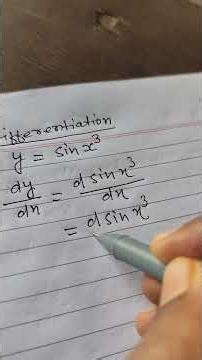 ifferentiation
y = sin x³
dy/dx = d sin x³/dx
= d sin x³